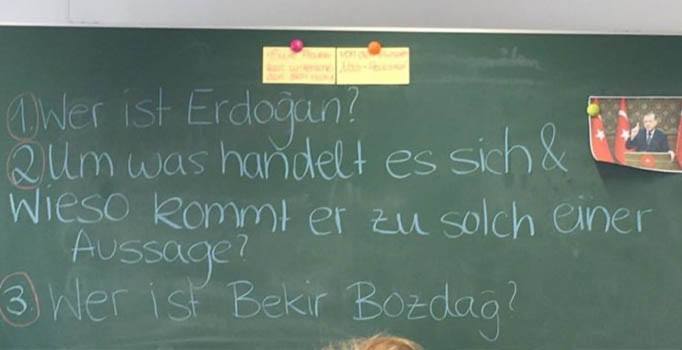 von
① Wer ist Erdoğan?
② Um was handelt es sich &
Wieso kommt er zu solch einer
Aussage?
③. Wer ist Bekir Bozdağ?